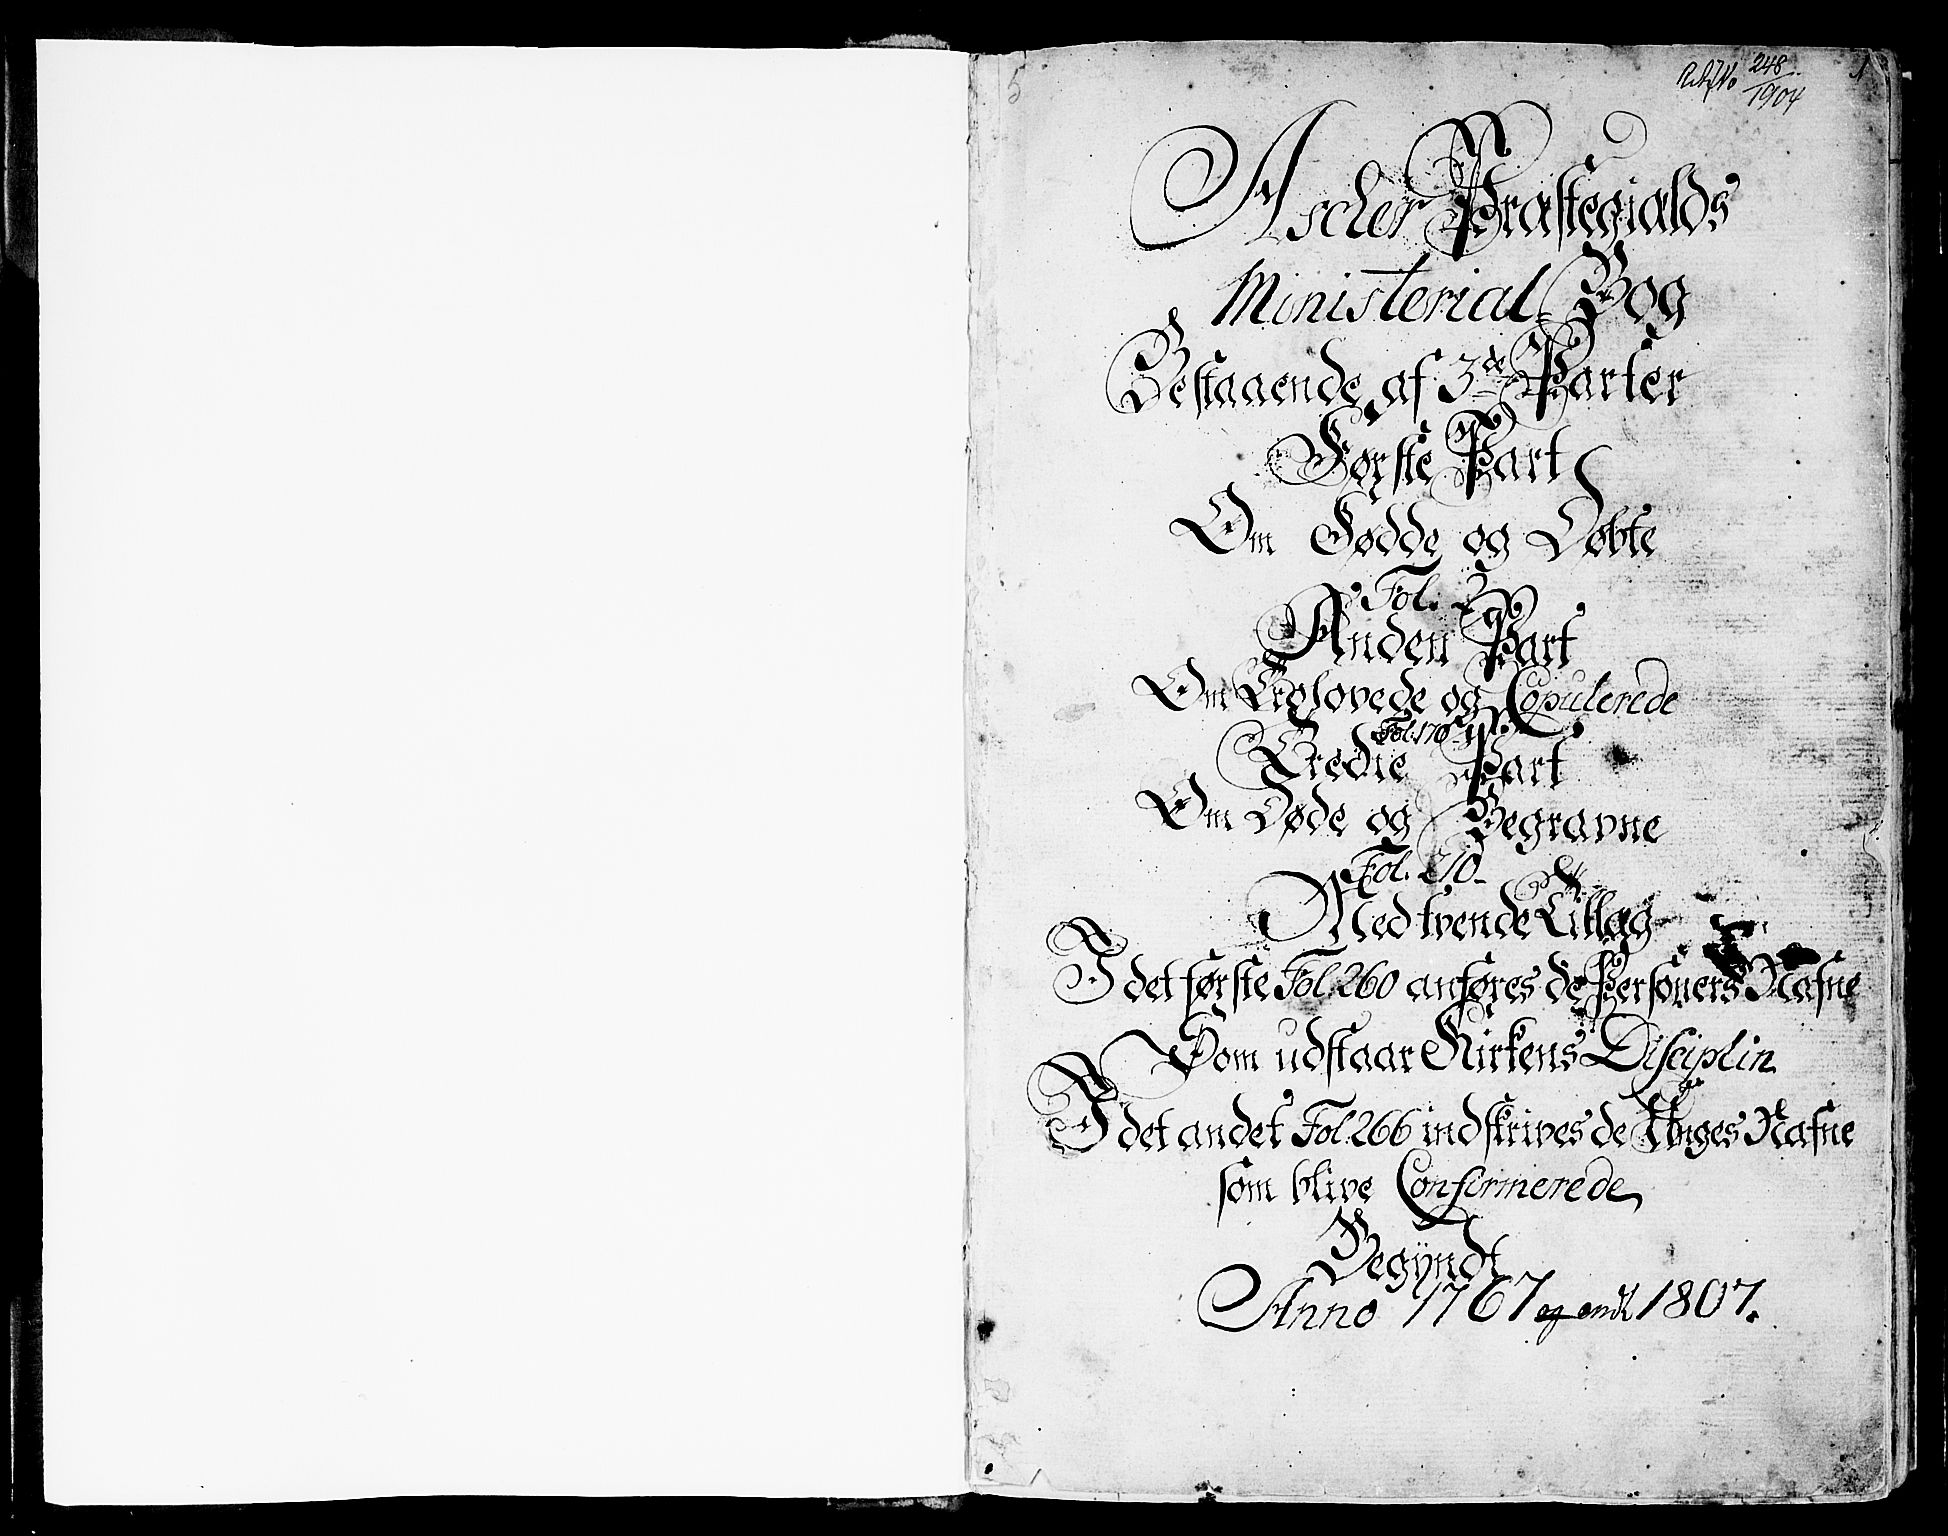 5
248
1904
1
Ascher Præstegialds
Ministerial-Bog
Bestaaende af 3de Parter
Første Part
Om Fødde og Døbte
Fol. 2
Anden Part
Om Trolovede og Copulerede
Fol. 170
Tredie Part
Om Døde og Begravne
Fol. 210
Med tvende Tillæg
I det første Fol. 260 anføres de Persouers Nafne
Som udstaar Kirkens Disciplin
I det andet Fol. 266 indskrives de Unges Nafne
som blive Confirmerede
Begÿndt
Anno 1767 og endt 1807.